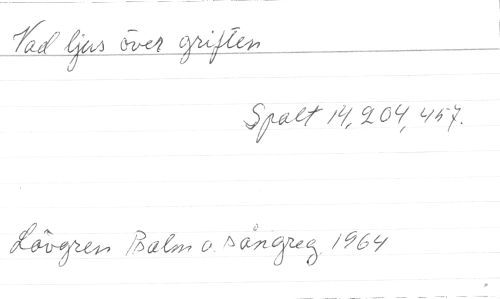 Vad ljus över griften
Spalt 14, 204, 457.
Lövgren Psalm o. sångreg. 1964